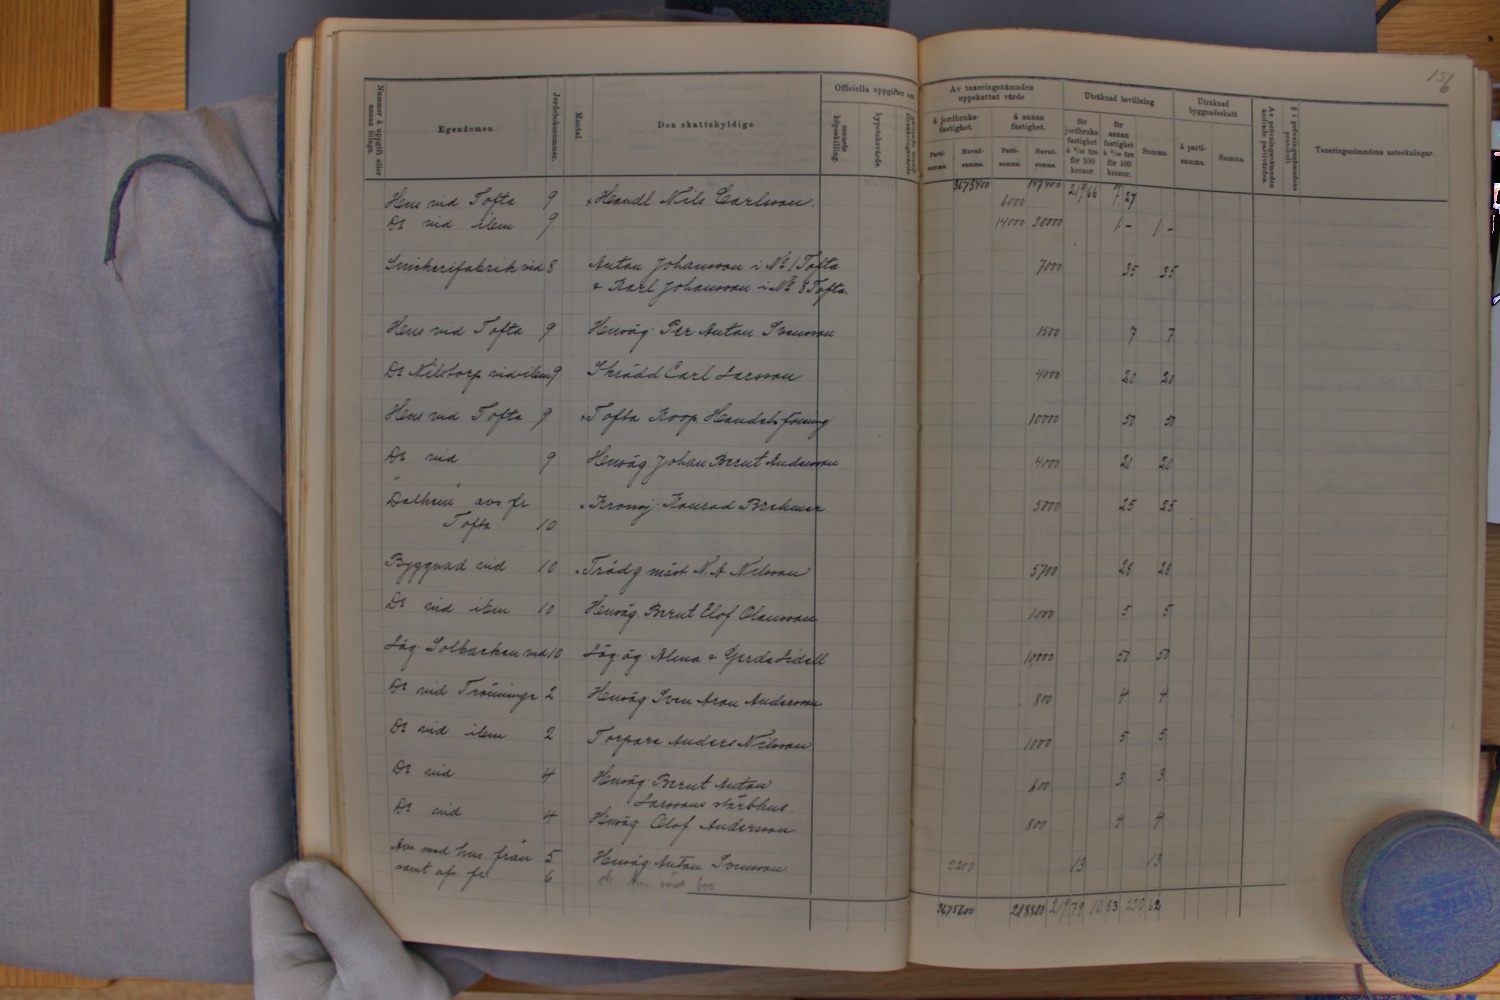 156
Nummer å uppgift eller annan bilaga.
Egendomen.
Jordeboksnummer.
Mantal.
Den skattskyldige.
Officiella uppgifter om
senaste köpeskilling.
hypoteksvärde.
Av taxeringsnämnden uppskattat värde
å jordbruksfastighet.
å annan fastighet.
Partisumma.
Huvudsumma.
Partisumma.
Huvudsumma.
Uträknad bevillning
för jordbruksfastighet
för 100 kronor.
för annan fastighet
för 100 kronor.
Summa.
Uträknad byggnadsskatt
å partisumma.
Summa.
Av prövningsnämnden ändrade partivärden.
§ i prövningsnämndens protokoll.
Taxeringsnämndens anteckningar.
3673400 147400 219 66 7 27
Hus vid Tofta 9 Handl Nils Carlsson. 6000
Do vid ilem 9 14000 20000 1 - 1 -
Snickerifabrik vid 8 Anton Johansson i No 1 Tofta 7000 35 35
& Karl Johansson i No 8 Tofta.
Hus vid Tofta 9 Husäg. Per Anton Svensson 1500 7 7
Do Nilstorp vid ilem 9 Skrädd Carl Larsson 4000 20 20
Hus vid Tofta 9 Tofta Koop. Handelsförening 10000 50 50
Do vid 9 Husäg Johan Bernt Andersson 4000 20 20
"Dalhem" avs fr Kronoj. Konrad Brehmer 5000 25 25
Tofta 10
Byggnad vid 10 Trädg mäst N. A Nilsson 5700 28 28
Do vid ilem 10 Husäg. Bernt Elof Olausson 1000 5 5
Läg. Solbacken vid 10 Läg. äg. Alma & Gerda Lidell 10000 50 50
Do vid Tröninge 2 Husäg. Sven Aron Andersson 800 4 4
Do vid ilem 2 Torpare Anders Nilsson 1000 5 5
Do vid 4 Husäg. Bernt Anton 600 3 3
Larssons stärbhus.
Do vid 4 Husäg Olof Andersson 800 4 4
Avs med hus från 5 Husäg Anton Svensson 2200 13 13
samt afs. fr 6
3675600 218800 219 79 10 83 230 62